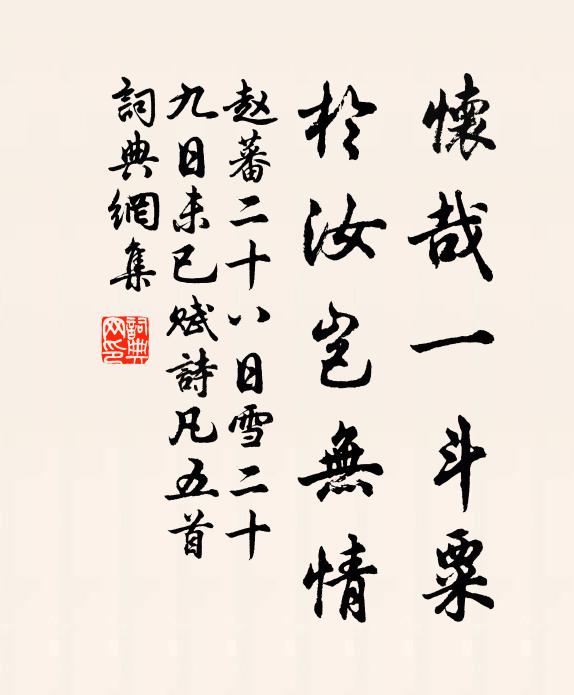 懷哉一斗粟
於汝豈無情
赵蕃二十八日雪二十
九日未已赋詩凡五首
詞典網集
詞典网印